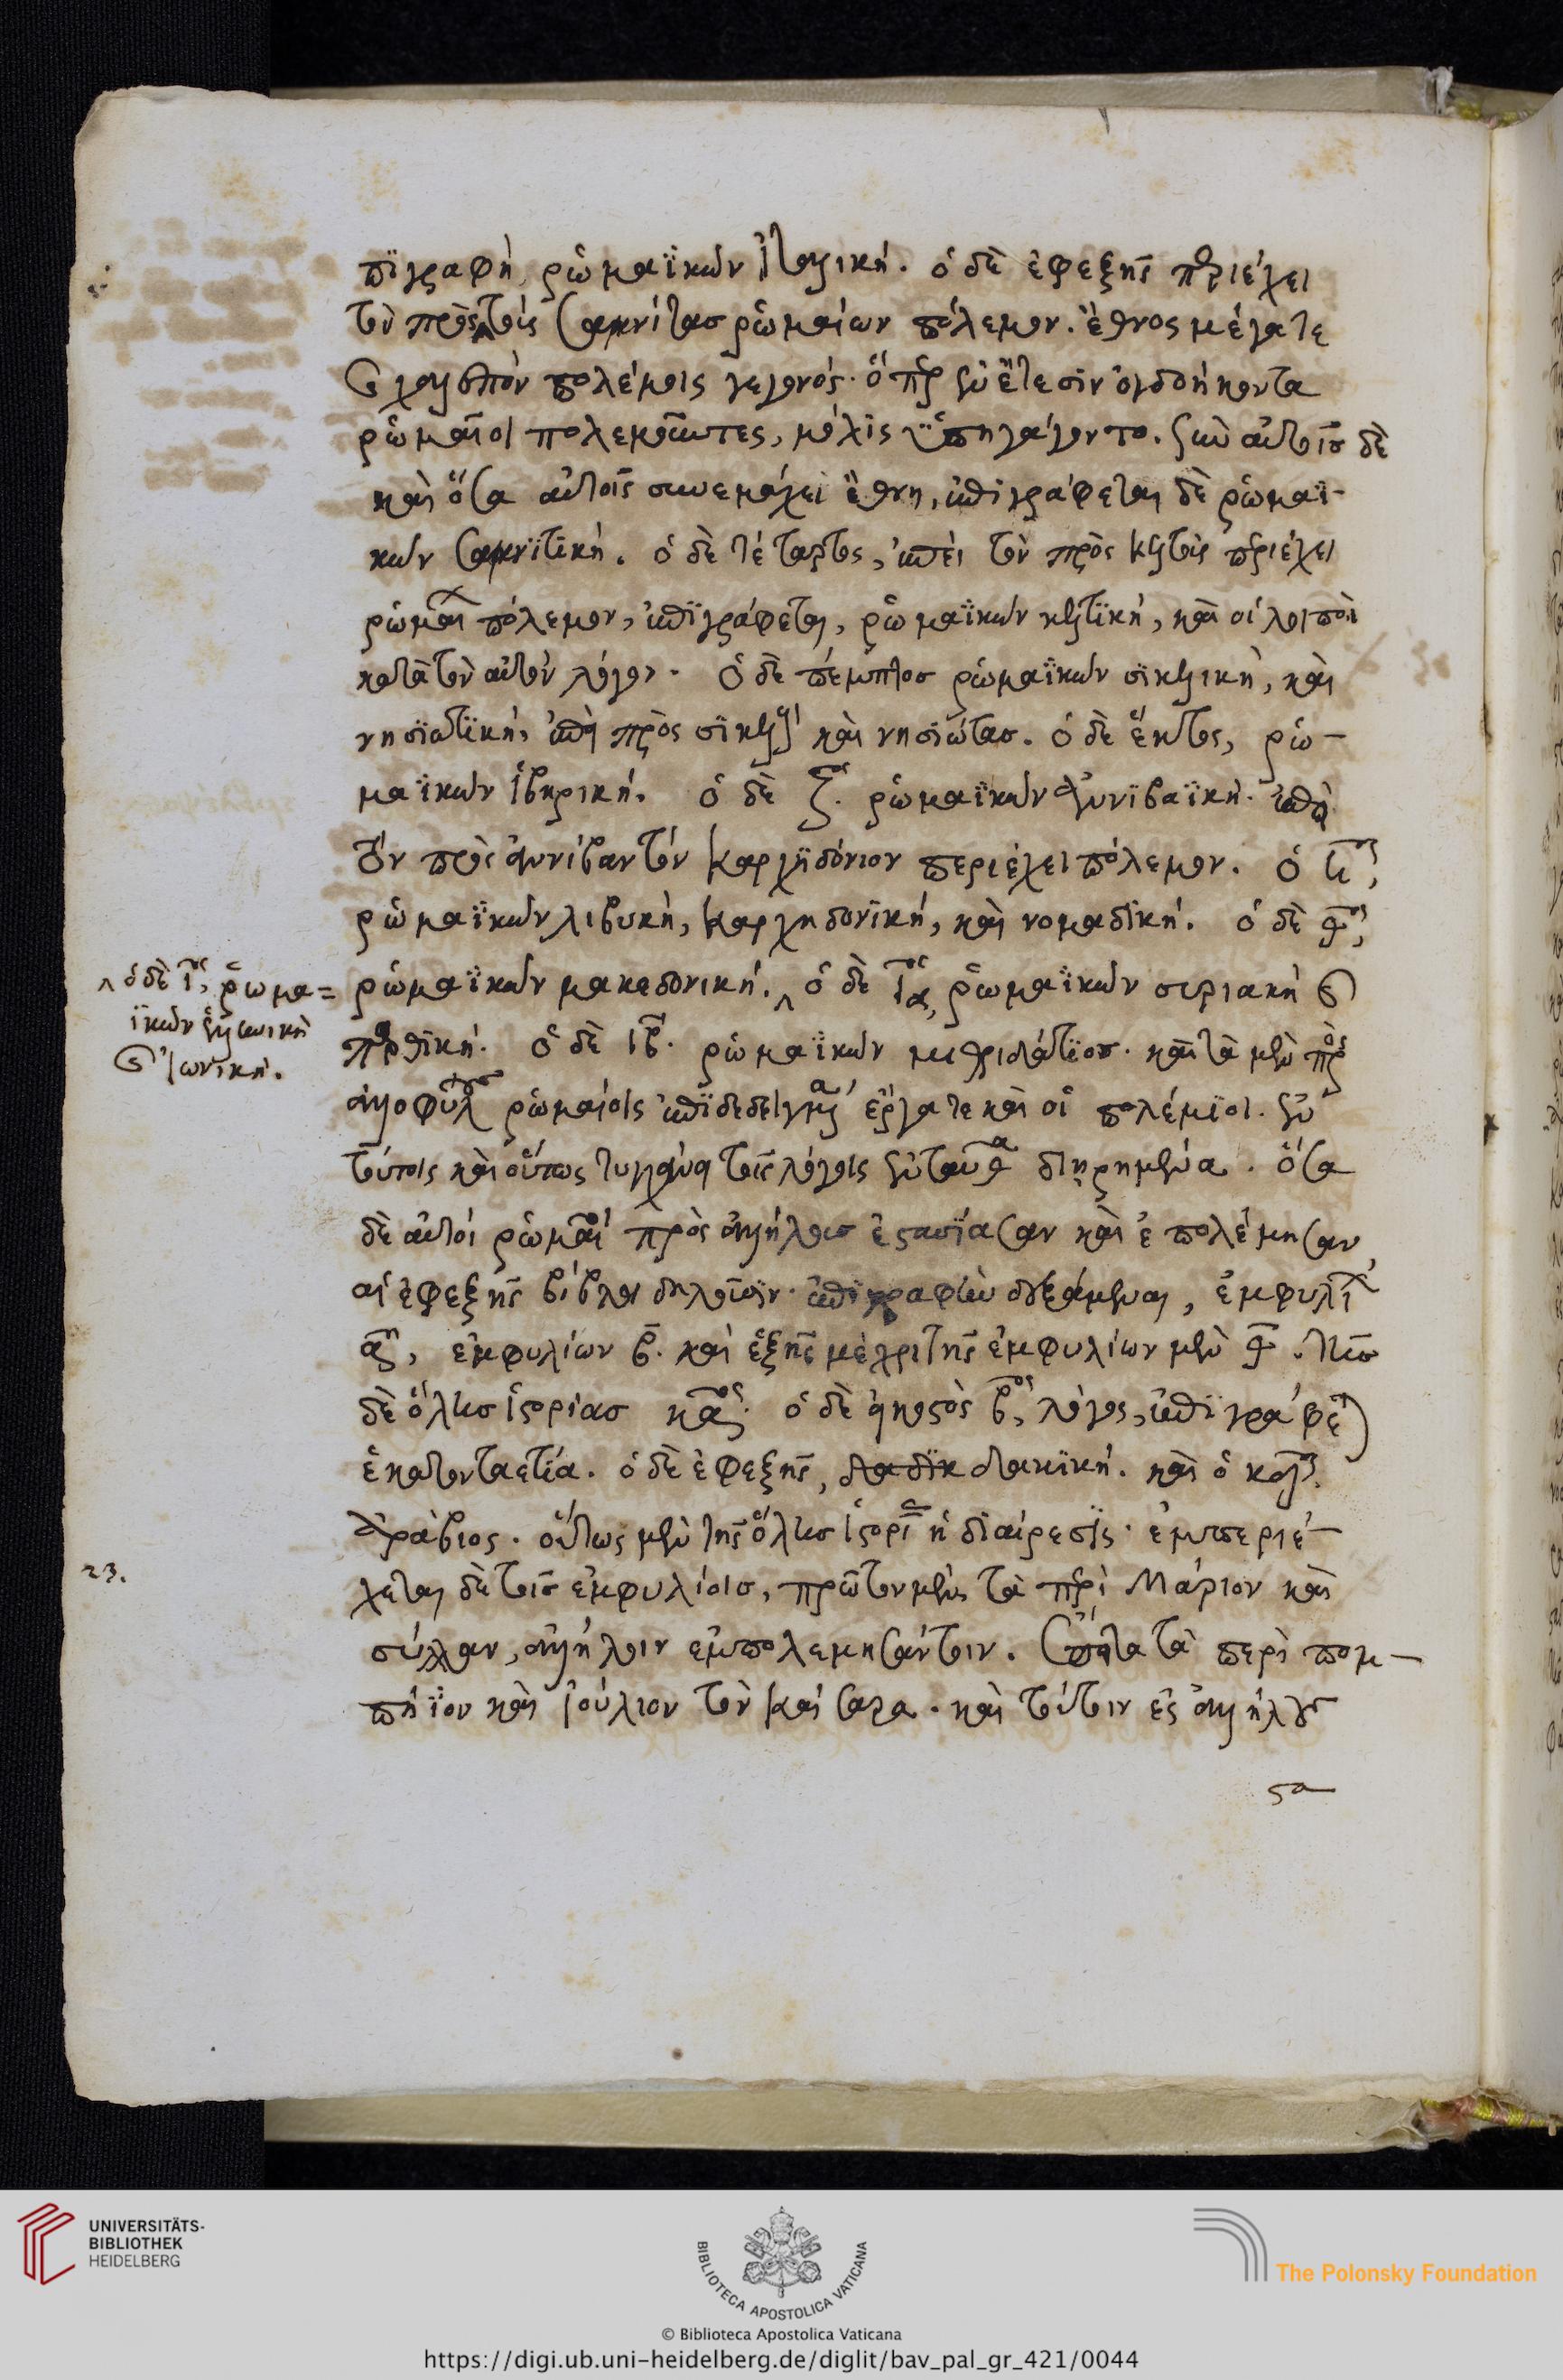 πϊγραφὴ, ῥωμαϊκῶν ἰταλική. ὁ δὲ ἐφεξῆς περιέχει
τὸν πρὸς τοὺς σαμνίτασ ῥωμαίων πόλεμον. ἔθνος μέγα τε
καὶ χαλεπὸν πολέμοις γεγονός. ὅπερ ἐν ἔτεσιν ὀγδοήκοντα
ῥωμαῖοι πολεμοῦντες, μόλις ὑπηγάγοντο. σὺν αὐτοῖσ δὲ
καὶ ὅσα αὐτοῖς συνεμάχει ἔθνη, ἐπιγράφεται δὲ ῥωμαϊ-
κῶν σαμνϊτϊκή. ὁ δὲ τέταρτος, ἐπεὶ τὸν πρὸς κελτοὺς περιέχει
ῥωμαί πόλεμον, ἐπϊγράφεται, ῥωμαϊκῶν κελτϊκή, καὶ οἱ λοιποὶ
κατὰ τὸν αὐτὸν λόγον. ὁ δὲ πέμπτοσ ῥωμαϊκῶν σϊκελικὴ, καὶ
νησϊωτϊκή, ἐπεὶ πρὸς σϊκελ καὶ νησϊώτασ. ὁ δὲ ἕκτος, ῥω-
μαϊκῶν ἰβηρική. ὁ δὲ ζος. ῥωμαϊκῶν ἀννϊβαϊκὴ. ἐπεὶ
τὸν πρὸς ἀννίβαν τὸν καρχηδόνιον περιέχει πόλεμον. ὁ ηος,
ῥωμαϊκῶν λιβυκὴ, καρχηδονϊκή, καὶ νομαδϊκή. ὁ δὲ θος,
ῥωμαϊκῶν μακεδονική. ὁ δὲ ιαος, ῥωμαϊκῶν συριακὴ καὶ
παρθϊκή. ὁ δὲ ιβ. ῥωμαϊκῶν μιθριδάτϊοσ. καὶ τὰ μὲν πρὸς
ἀλλοφύλ ῥωμαίοις ἐπϊδεδειγμένα ἔργα τε καὶ οἱ πολέμϊοι. ἐν
τούτοις καὶ οὕτως τυγχάνει τοῖς λόγοις ἐνταῦθα διῃρημένα. ὅσα
δὲ αὐτοὶ ῥωμαῖοι πρὸς ἀλλήλουσ ἐστασϊάσαν καὶ ἐπολέμησαν,
αἱ ἐφεξῆς βίβλοι δηλοῦσϊν. ἐπϊγραφὴν δεξάμεναι, ἐμφυλί
α, ἐμφυλίων β. καὶ ἑξῆς μέχρι τῆς ἐμφυλίων μὲν θ. τῆσ
δὲ ὅλησ ἱστορίασ καος. ὁ δὲ εἰκοστὸς βος, λόγος, ἐπϊγράφε
ἑκατονταετία. ὁ δὲ ἐφεξῆς, δαδϊκ δακϊκή. καὶ ὁ κδος.
ἀράβιος. οὕτως μὲν τῆς ὅλησ ἱστορί ἡ δϊαίρεσϊς. ἐμπεριέ-
χεται δὲ τοῖσ ἐμφυλίοισ, πρῶτον μὲν, τὰ περὶ Μάριον καὶ
σύλλαν, ἀλλήλοιν ἐμπολεμησάντοιν. ἔπειτα τὰ περὶ πομ-
πήϊον καὶ ἰούλιον τὸν καίσαρα. καὶ τούτοιν ἐς ἀλλήλους
στα
ὁ δὲ ιος, ῥωμα=
ϊκῶν ἑλληνικὴ
καὶ ἰωνϊκή.
23.
UNIVERSITÄTS-
BIBLIOTHEK
HEIDELBERG
BIBLIOTECA APOSTOLICA VATICANA
The Polonsky Foundation
© Biblioteca Apostolica Vaticana
https://digi.ub.uni-heidelberg.de/diglit/bav_pal_gr_421/0044